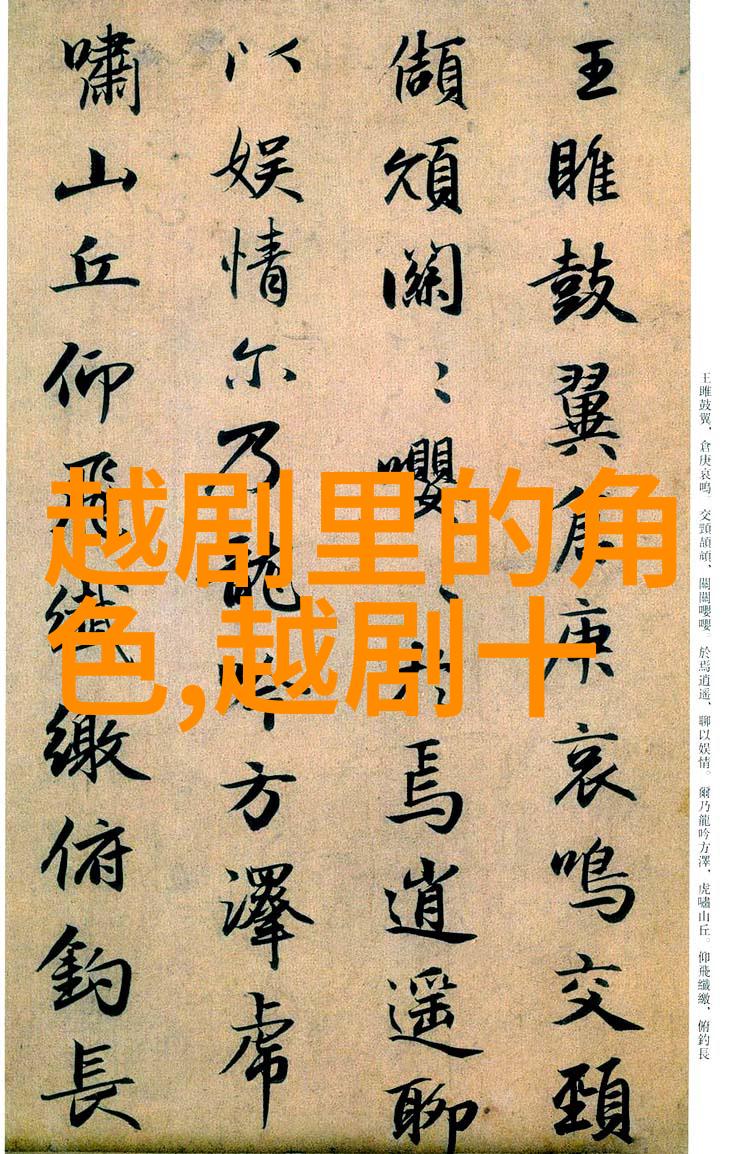 王雎鼓翼倉庚哀鳴交頸
頡頏關〻嚶〻於焉逍遥聊
以娱情尔乃龍吟方澤虎
嘯山丘仰飛纖繳俯釣長
越剧里的角
色,越剧十
王雎鼓翼，倉庚哀鳴。交頸頡頏，關關嚶嚶。於焉逍遥，聊以娱情。爾乃龍吟方澤，虎嘯山丘。仰飛纖繳，俯釣長